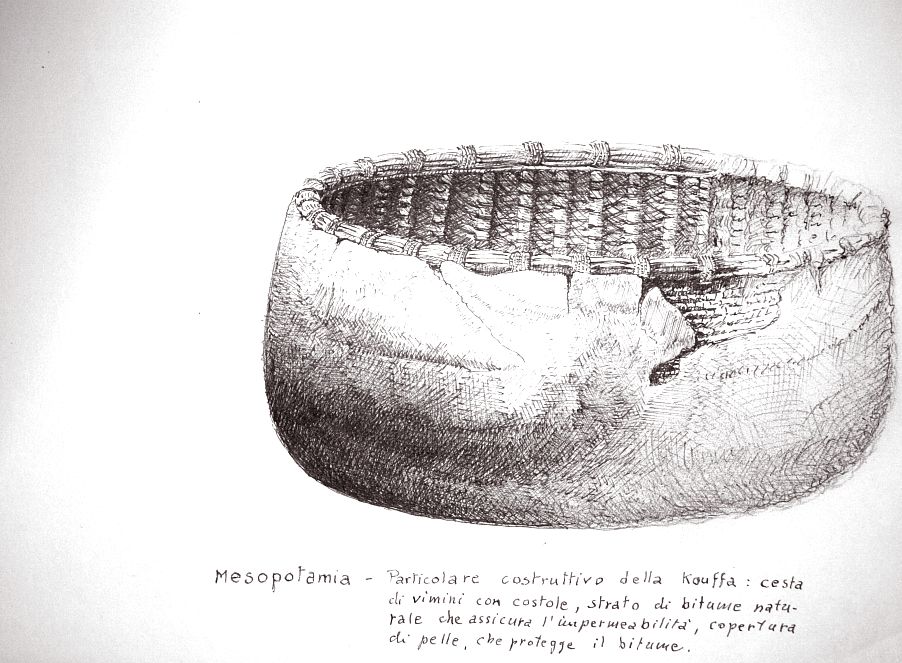 Mesopotamia - Particolare costruttivo della Kouffa : cesta
di vimini con costole, strato di bitume natu-
rale che assicura l'impermeabilità, copertura
di pelle, che protegge il bitume.